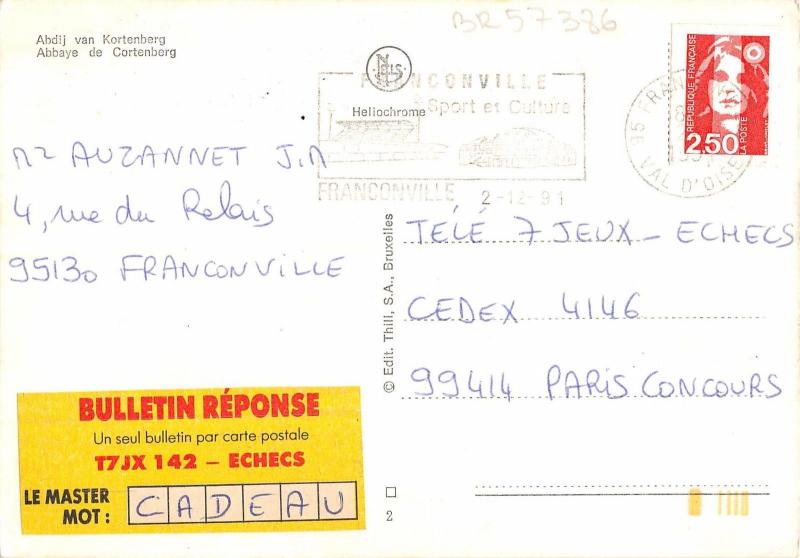 BR57386
Abdij van Kortenberg
Abbaye de Cortenberg
NELS
Heliochrome
FRANCONVILLE
Sport et Culture
FRANCONVILLE 2-12-91
95 FRANCONVILLE
VAL D'OISE
RÉPUBLIQUE FRANÇAISE
2,50
LA POSTE
Mr AUZANNET J.M
4, rue du Relais
95130 FRANCONVILLE
© Edit. Thill, S.A., Bruxelles
TÉLÉ 7 JEUX - ECHECS
CEDEX 4146
99414 PARIS CONCOURS
BULLETIN RÉPONSE
Un seul bulletin par carte postale
T7JX 142 – ECHECS
LE MASTER MOT : CADEAU
2